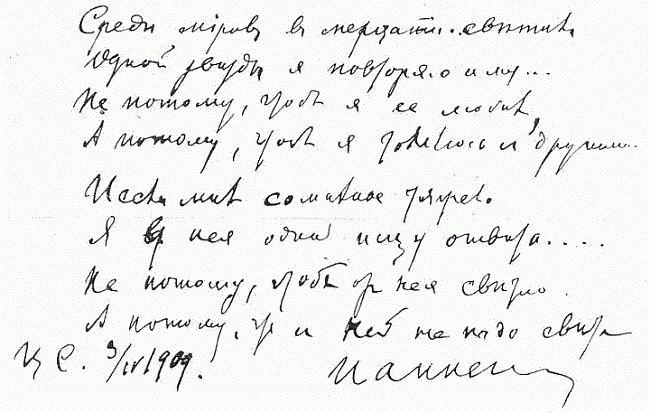 Среди мировъ въ мерцании свѣтилъ
Одной звѣзды я повторяю имя...
Не потому, чтобъ я ее любилъ,
А потому, что я томлюсь съ другими..
И если мнѣ сомнѣнье тяжело
Я у нея одной ищу отвѣта.....
Не потому, чтобъ отъ нея свѣтло.
А потому, что съ ней не надо свѣта
Ц С. 3/IV 1909. И Анненс